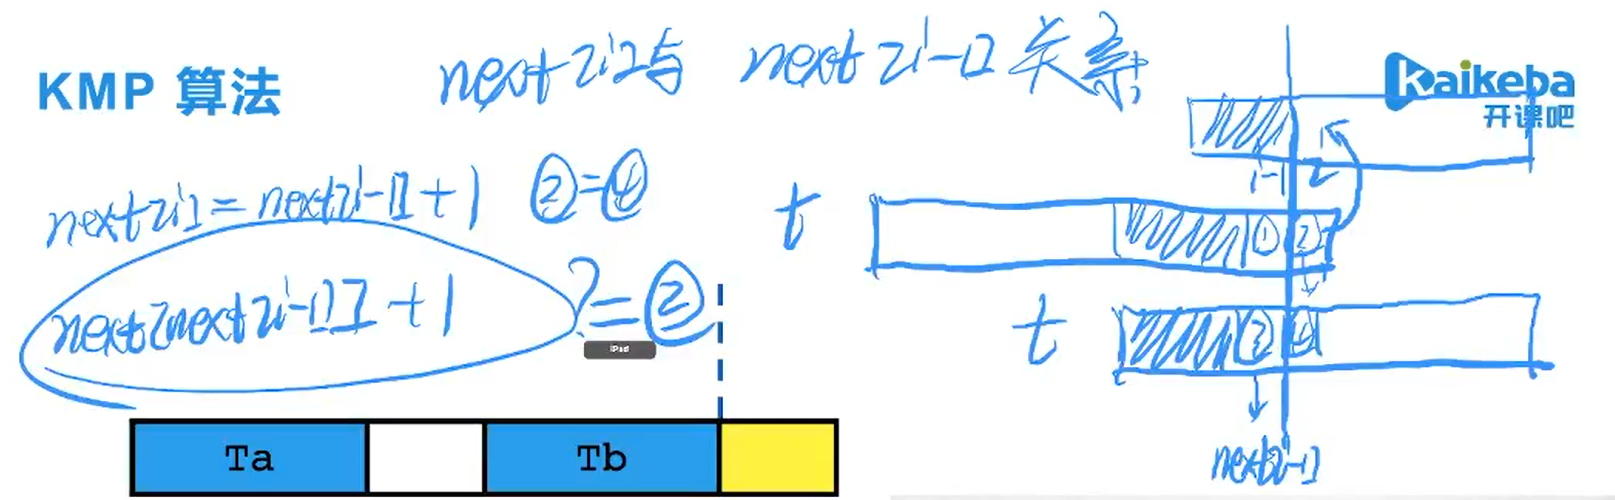 KMP 算法
next[i]与 next[i-1]关系
Kaikeba
开课吧
next[i] = next[i-1] + 1 ② = ④
next[next[i-1]] + 1 ? = ②
iPad
i-1 i
t
① ②
t
③ ④
next[i-1]
Ta
Tb